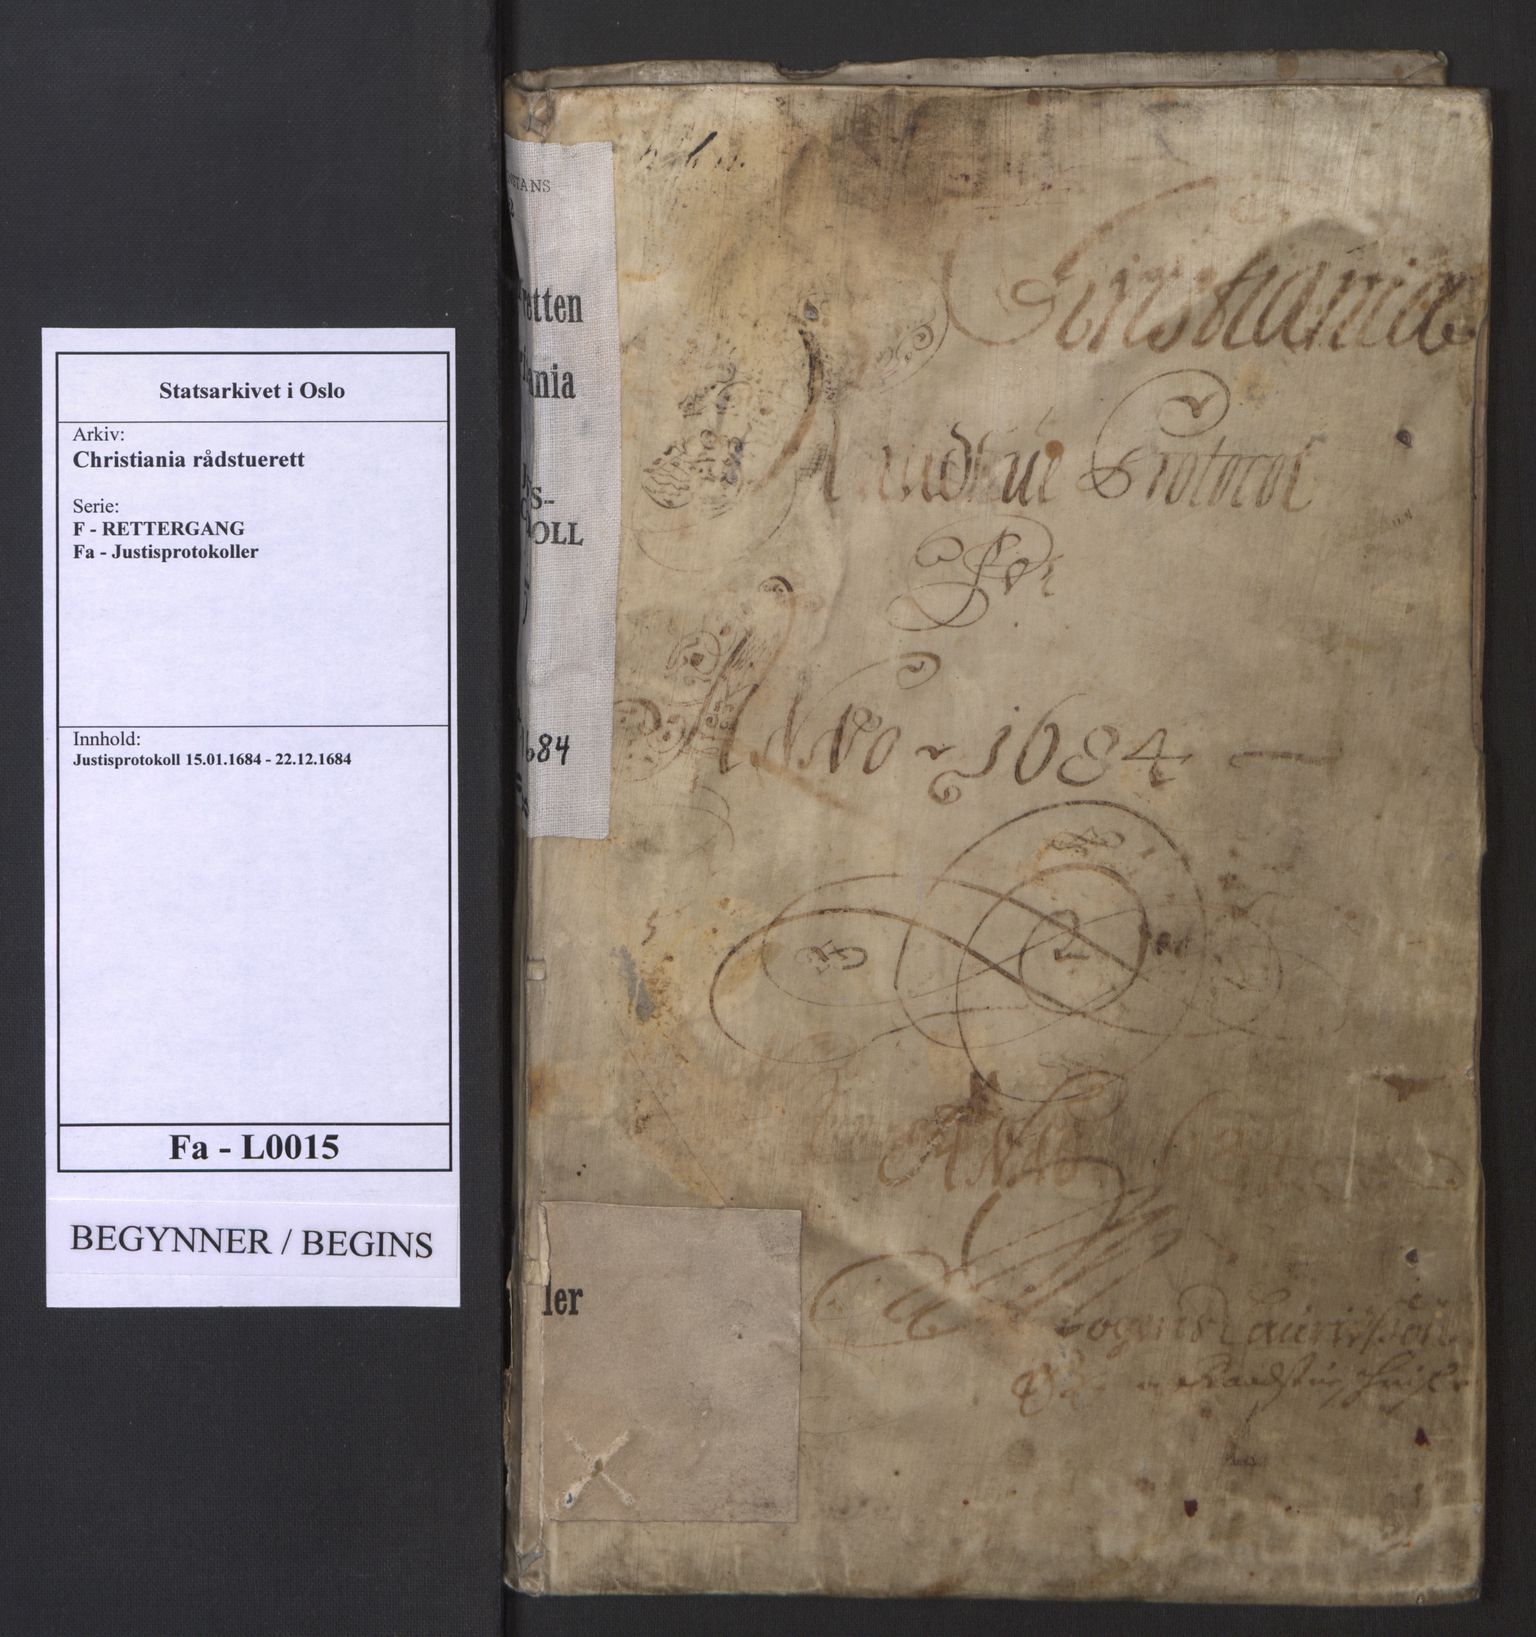 Statsarkivet i Oslo
Arkiv:
Christiania rådstuerett
Serie:
F - RETTERGANG
Fa - Justisprotokoller
Innhold:
Justisprotokoll 15.01.1684 - 22.12.1684
Fa - L0015
BEGYNNER / BEGINS
STANS
retten
iania
s-
OLL
1684
ler
Christiania
Raadstue Protocol
For
Anno 1684
Anno
Mogens Lauritssøn